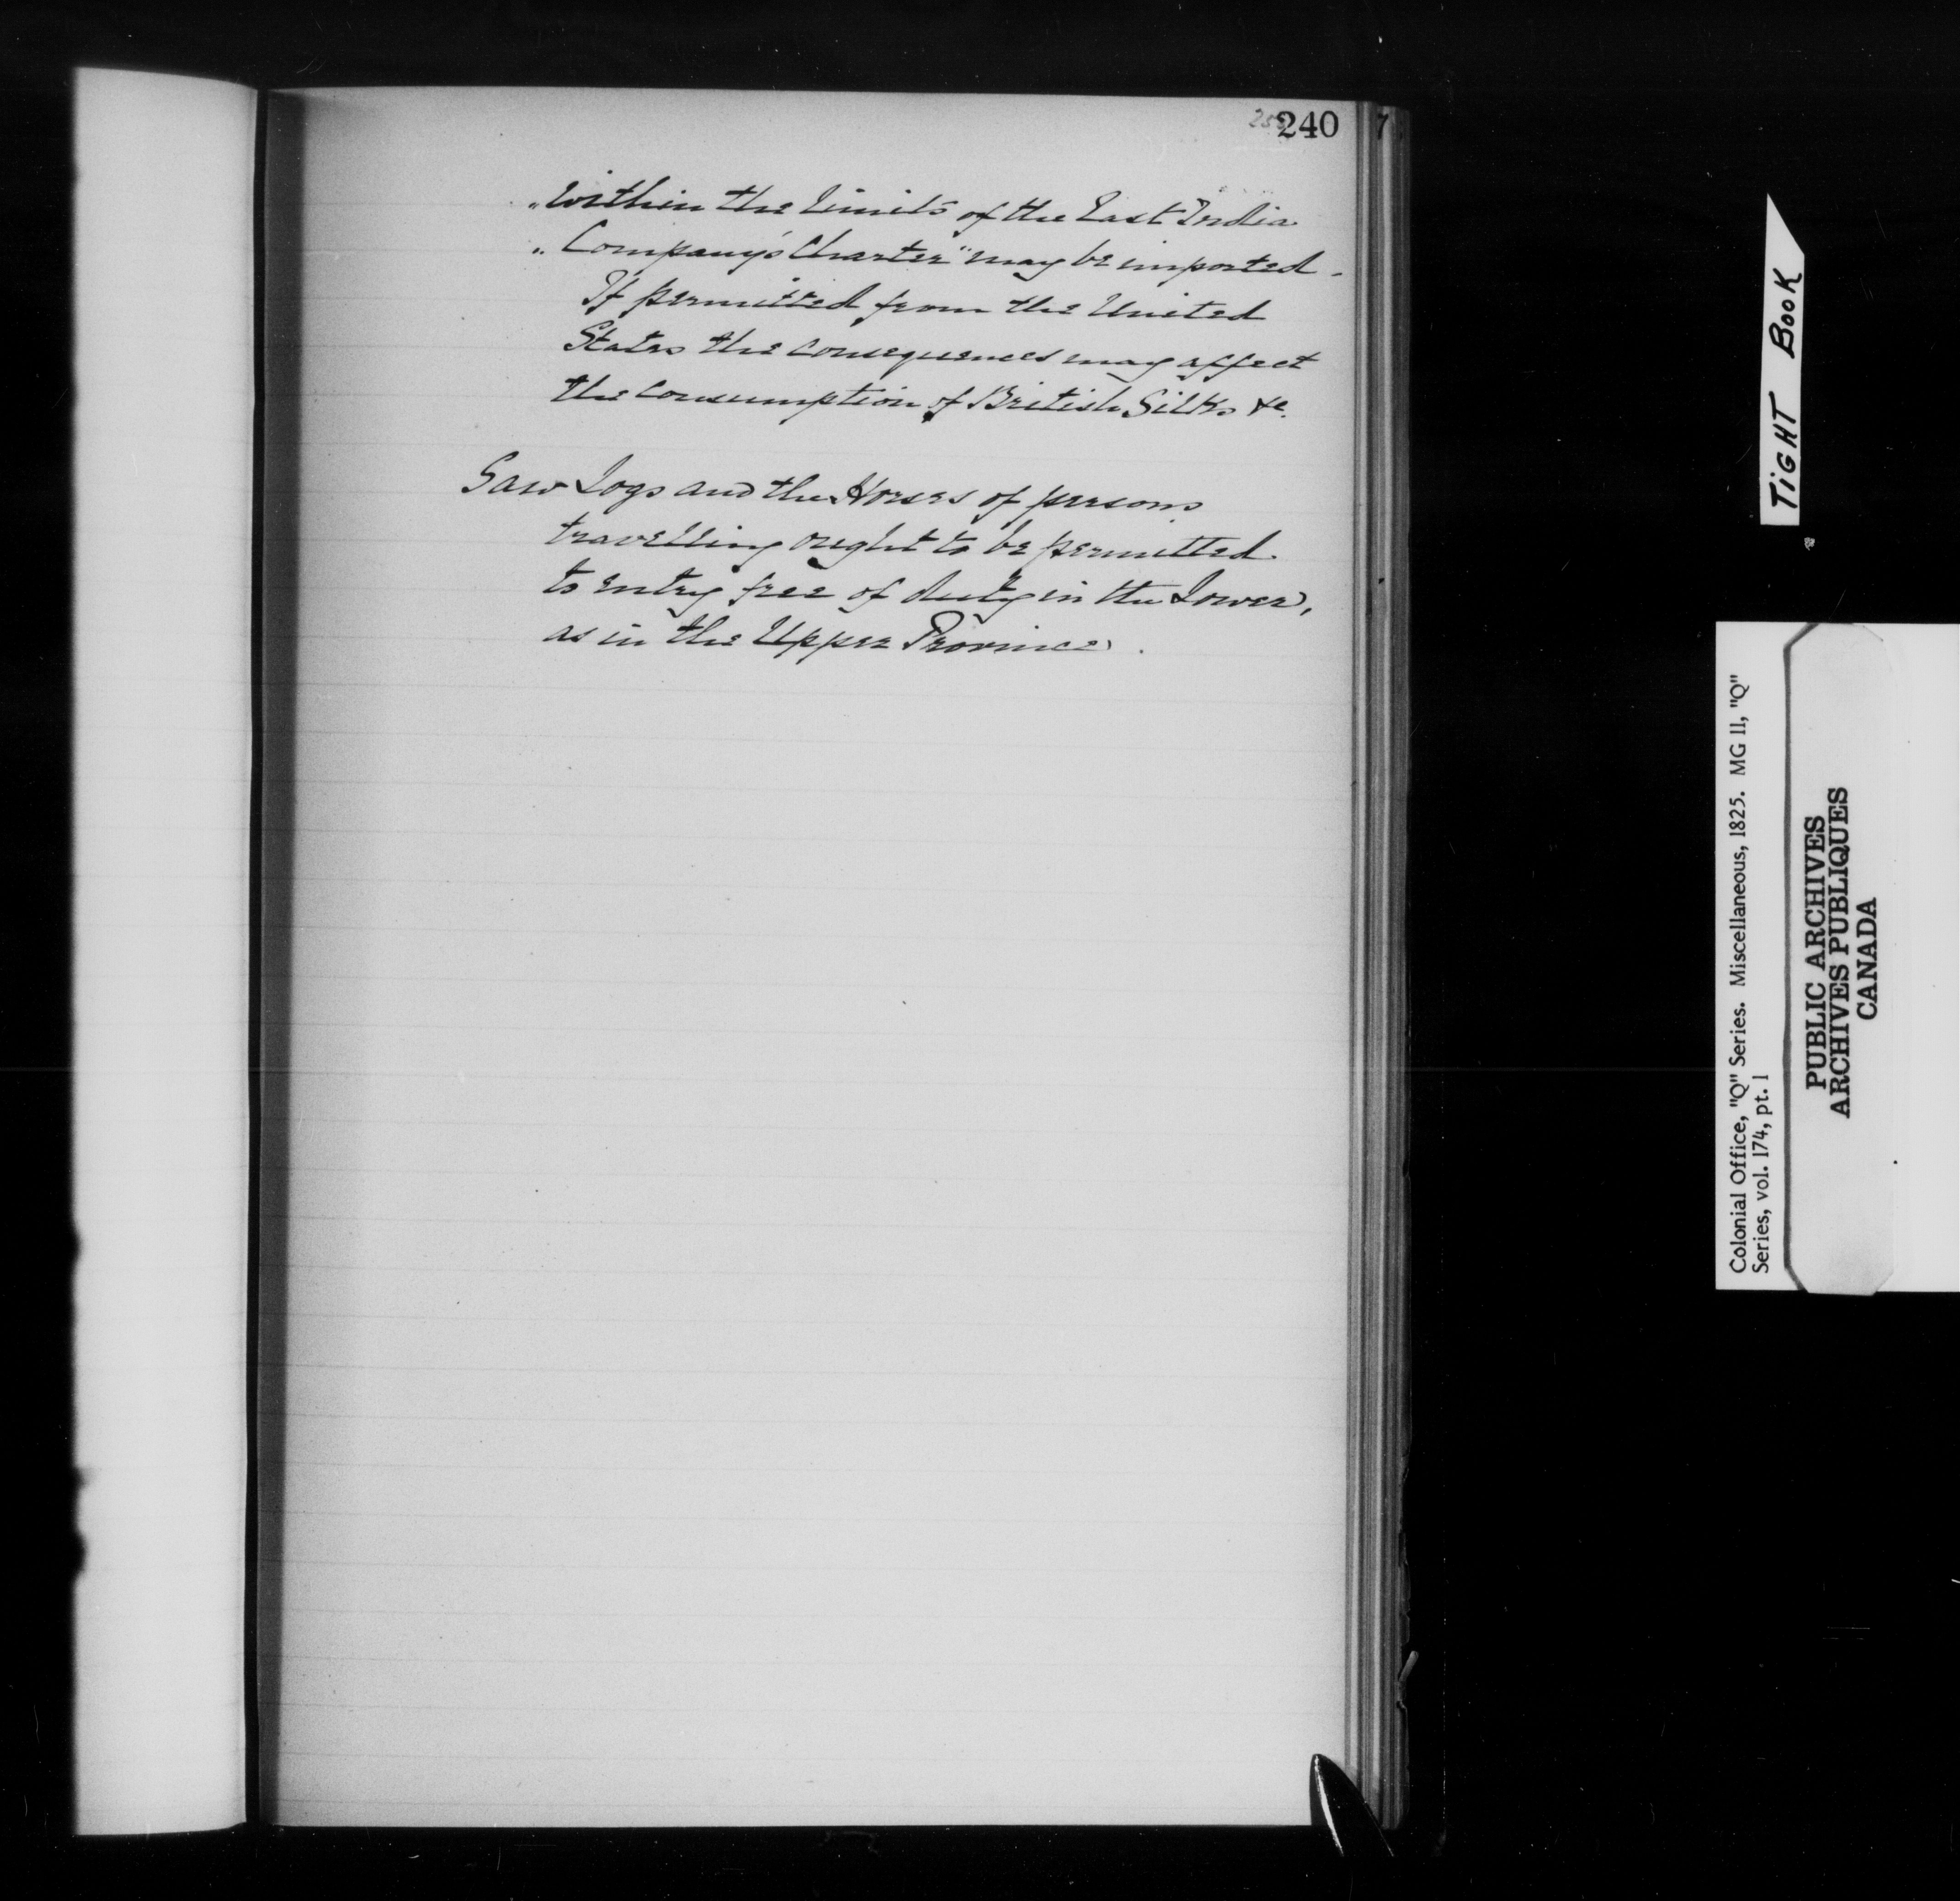 240
"within the limits of the East India
"Company's Charter" may be imported -
If permitted from the United
States the consequences may affect
the consumption of British Silks &c.
Saw Logs and the Horses of persons
travelling ought to be permitted
to entry free of duty in the Lower,
as in the Upper Province.
TIGHT BOOK
Colonial Office, "Q" Series. Miscellaneous, 1825. MG 11, "Q"
Series, vol. 174, pt. 1
PUBLIC ARCHIVES
ARCHIVES PUBLIQUES
CANADA